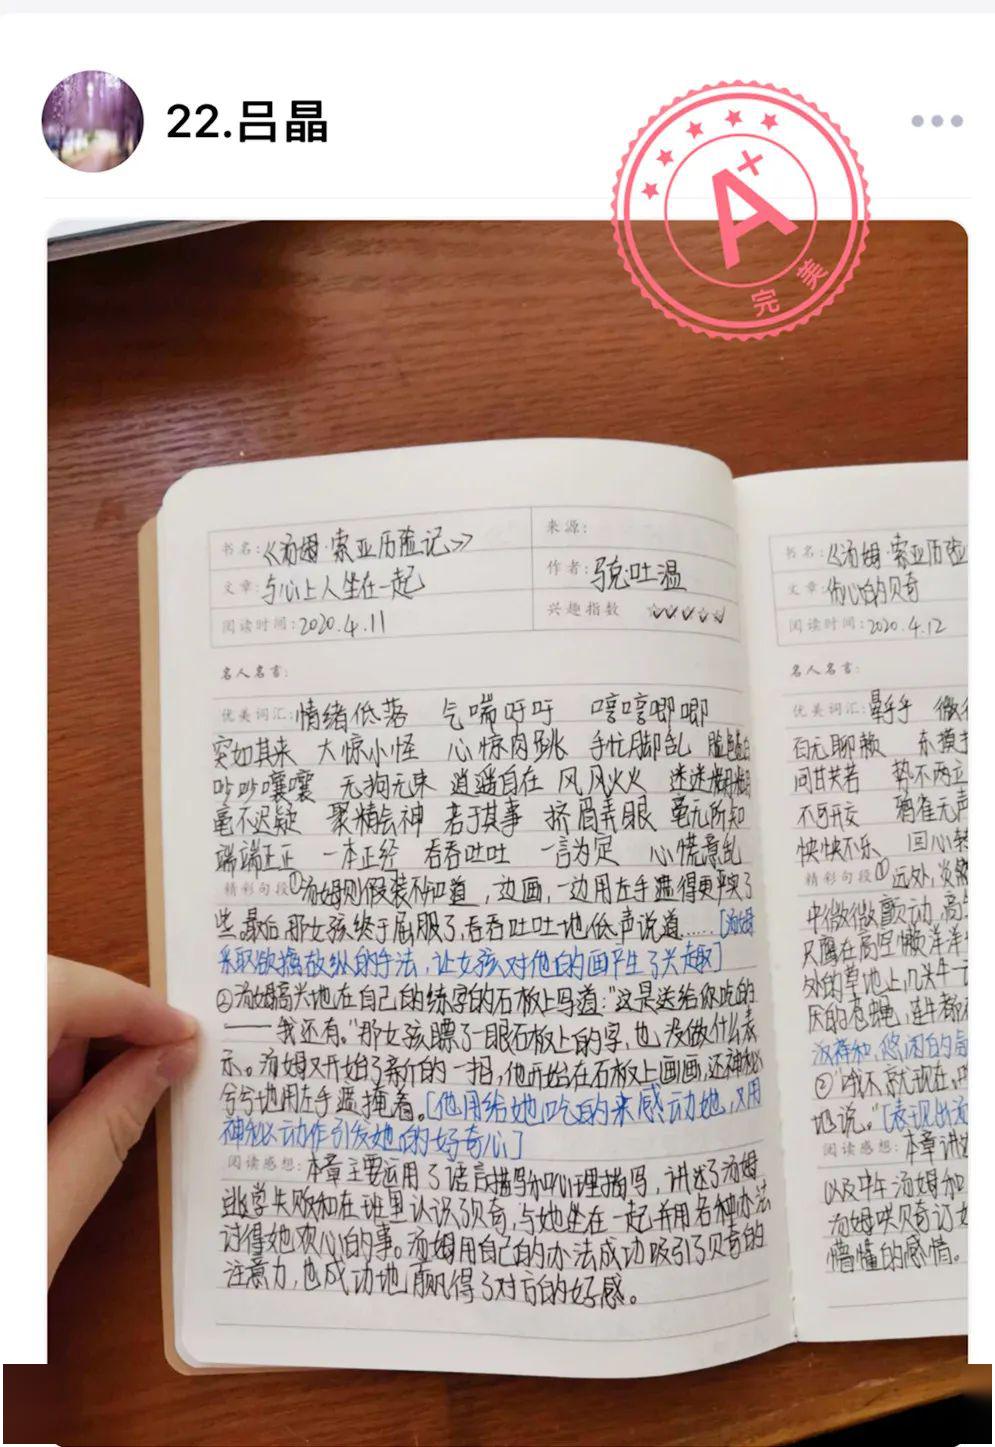 22.吕晶
A+
完美
书名:《汤姆·索亚历险记》
来源:
文章:与心上人坐在一起
作者:马克·吐温
阅读时间:2020.4.11
兴趣指数
名人名言:
优美词汇:情绪低落 气喘吁吁 嘻嘻唧唧
突如其来 大惊小怪 心惊肉跳 手忙脚乱 脸色苍白
吵吵嚷嚷 无拘无束 逍遥自在 风风火火 迷迷糊糊
毫不迟疑 聚精会神 若于其事 挤眉弄眼 毫无所知
端端正正 一本正经 吞吞吐吐 一言为定 心慌意乱
精彩句段:①汤姆则假装不知道,边画,一边用左手遮得更严实了
些。最后,那女孩终于屈服了,吞吞吐吐地低声说道……[汤姆
采取欲擒故纵的手法,让女孩对他的画产生了兴趣]
②汤姆高兴地在自己的练字的石板上写道:"这是送给你吃的
——我还有。"那女孩瞟了一眼石板上的字,也没做什么表
示。汤姆又开始了新的一招,他开始在石板上画画,还神秘
兮兮地用左手遮掩着。[他用给她吃的来感动她,又用
神秘动作引发她的好奇心]
阅读感想:本章主要运用了语言描写和心理描写,讲述了汤姆
逃学失败和在班里认识了贝奇,与她坐在一起并用各种办法
讨得她欢心的事。汤姆用自己的办法成功吸引了贝奇的
注意力,也成功地赢得了对方的好感。
书名:《汤姆·索亚历险
文章:伤心的贝奇
阅读时间:2020.4.12
名人名言:
优美词汇:晕乎乎
百无聊赖 东摸
同甘共苦 势不两立
不可开交 鸦雀无声
怏怏不乐 回心转
精彩句段:①远外,炎
中微微颤动,高
只鹰在高空懒洋洋
外的草地上,几头牛
厌的苍蝇,连牛都
派祥和,悠闲的
②"我不,就现在,
地说。"[表现出汤
阅读感想:本章讲
以及中午汤姆和
汤姆哄贝奇订
懵懂的感情。